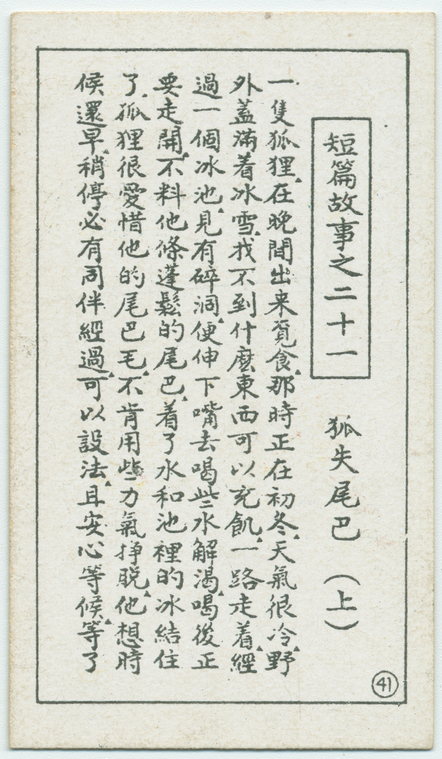 短篇故事之二十一
狐失尾巴（上）
一隻狐狸、在晚間出来覓食、那時正在初冬、天氣很冷、野
外蓋滿着冰雪、找不到什麽東西可以充飢、一路走着、經
過一個冰池、見有碎洞、便伸下嘴去喝些水解渴、喝後正
要走開、不料他條蓬鬆的尾巴、着了水和池裡的冰結住
了、狐狸很愛惜他的尾巴毛、不肯用些力氣掙脫、他想時
候還早、稍停必有同伴經過、可以設法、且安心等候、等了
41